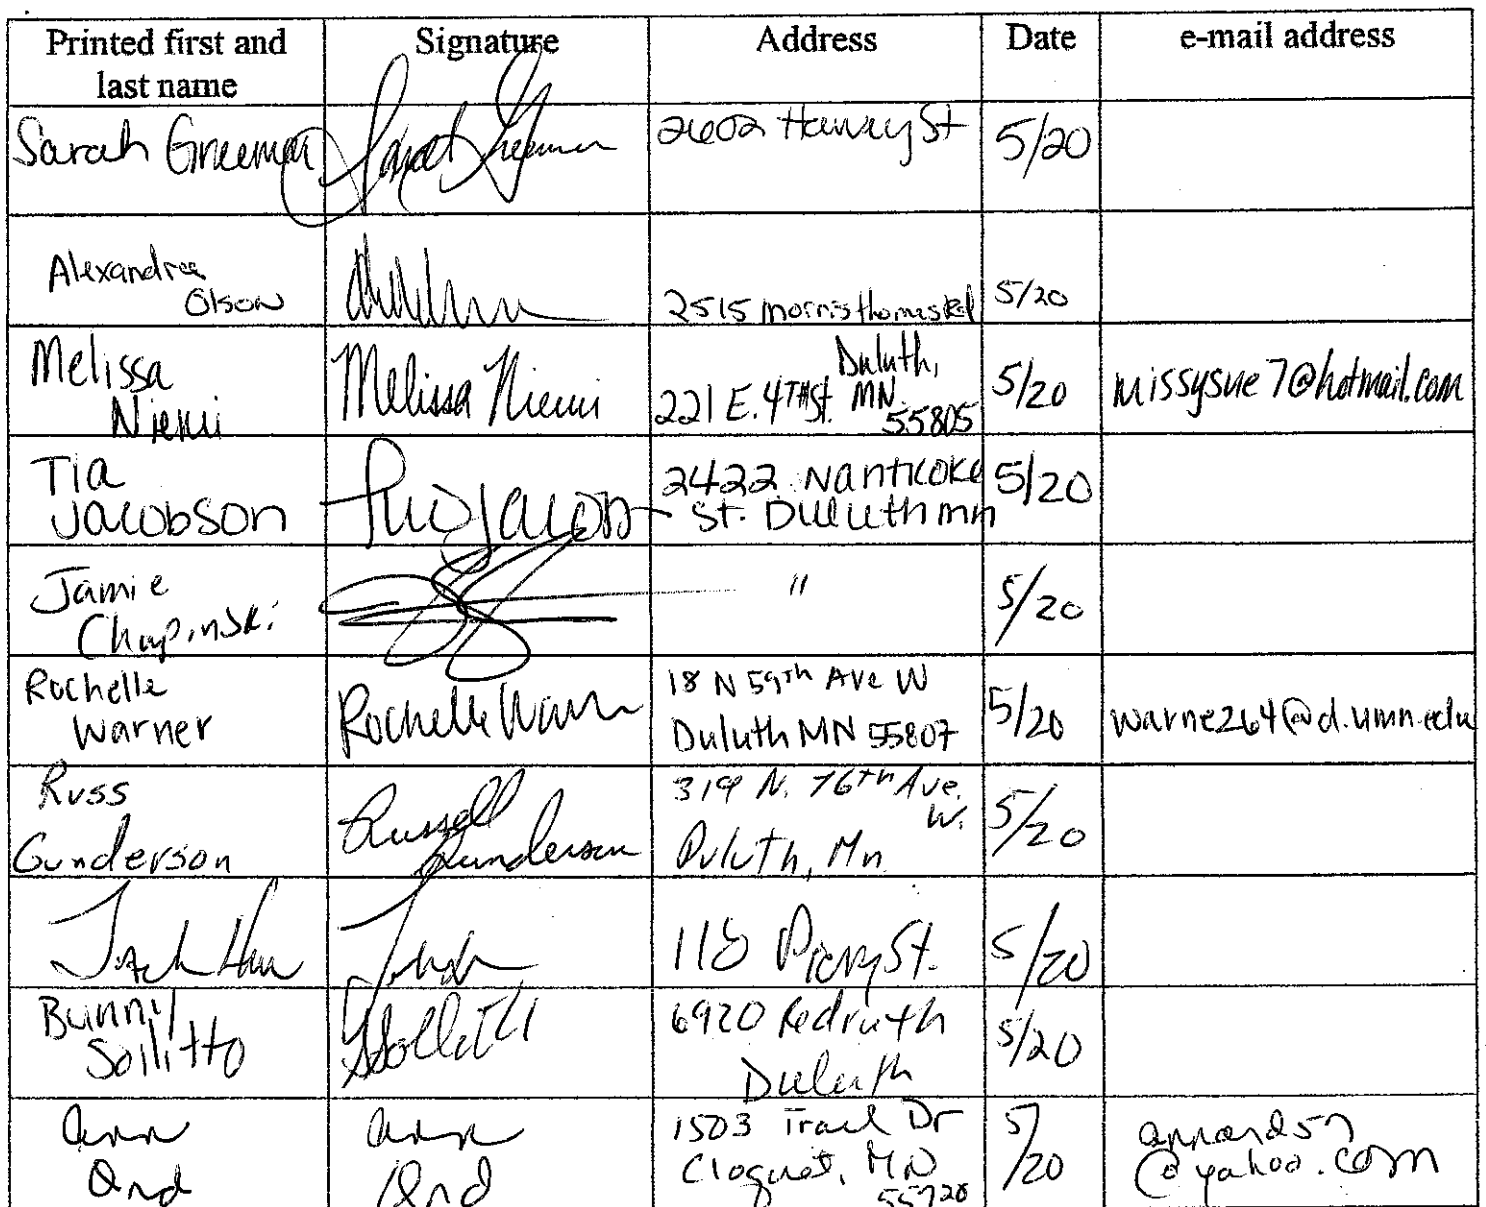 Printed first and last name Signature Address Date e-mail address
Sarah Greeman 2602 Harvey St 5/20
Alexandrea Olson 2515 morris thomas Rd 5/20
Melissa Niemi Melissa Niemi 221 E. 4TH St. Duluth, MN. 55805 5/20 missysue7@hotmail.com
Tia Jacobson Tia Jacobson 2422 Nanticoke St. Duluth mn 5/20
Jamie Chupinski " 5/20
Rochelle Warner Rochelle Warner 18 N 59th Ave W Duluth MN 55807 5/20 warne264@d.umn.edu
Russ Gunderson Russell Gunderson 319 N. 76th Ave. W. Duluth, Mn 5/20
118 St. 5/20
Bunny Sollitto 6920 Redruth Duluth 5/20
Ann Ord Ann Ord 1503 Trail Dr Cloquet, MN 55720 5/20 annord57@yahoo.com